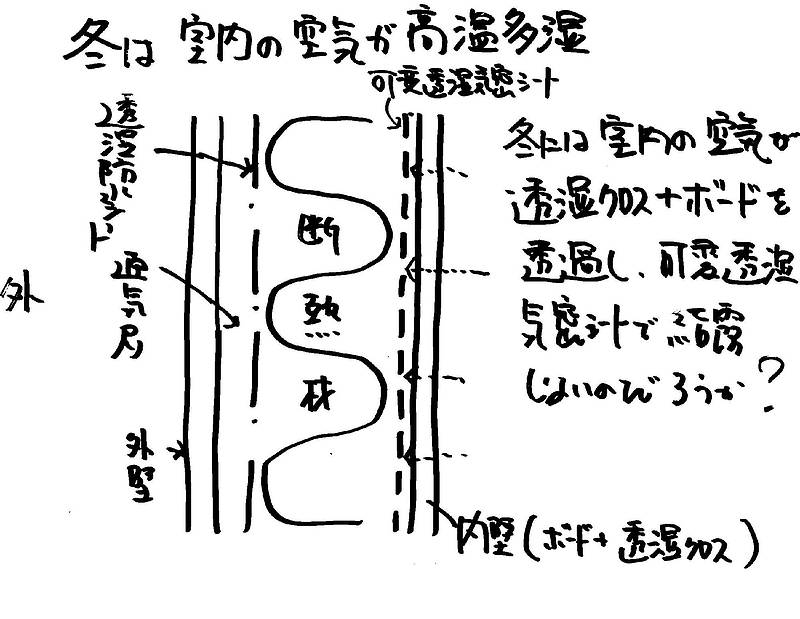 冬は室内の空気が高温多湿
可変透湿気密シート
透湿防水シート
通気層
外
外壁
断
熱
材
冬には室内の空気が
透湿クロス+ボードを
透過し、可変透湿
気密シートで結露
しないのだろうか?
内壁(ボード+透湿クロス)